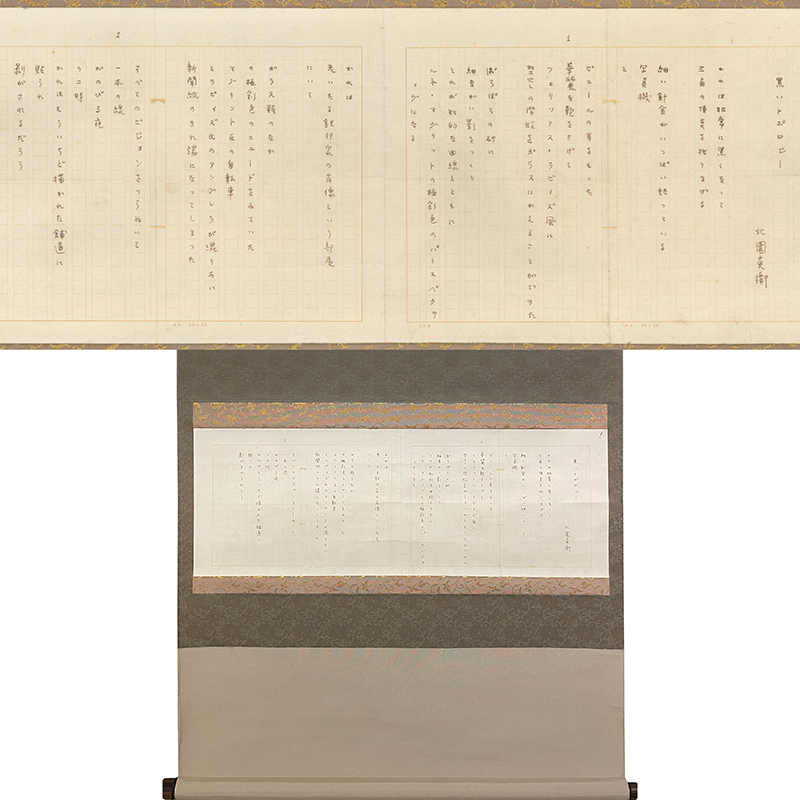 黒いトポロジー
北園克衛
1
かれは非常に黒くなって
三番の
細い針金がいっぱい詰っている
写真機
と
ピエールの耳をもった
華麗な靴をさげて
フェリックス・ラビイズ風に
の階段をガラスにかえることができた
ぼろぼろの砂に
細ながい影をつくり
それが知的な曲線とともに
ルネ・マグリットの極彩色のパースペクテ
ィヴになる
2
かれは
老いたる の肖像という部屋
にいて
ガラス類のなか
の極彩色のニュードをみていた
マグリット氏の自転車
とラビイズ氏の が混りあい
新聞紙のきれ端になってしまった
すべてのビジョンをつらぬいて
一本の線
がのびる夜
の二時
かれはもういちど描かれた舗道に
貼られ
剥がされるだろう